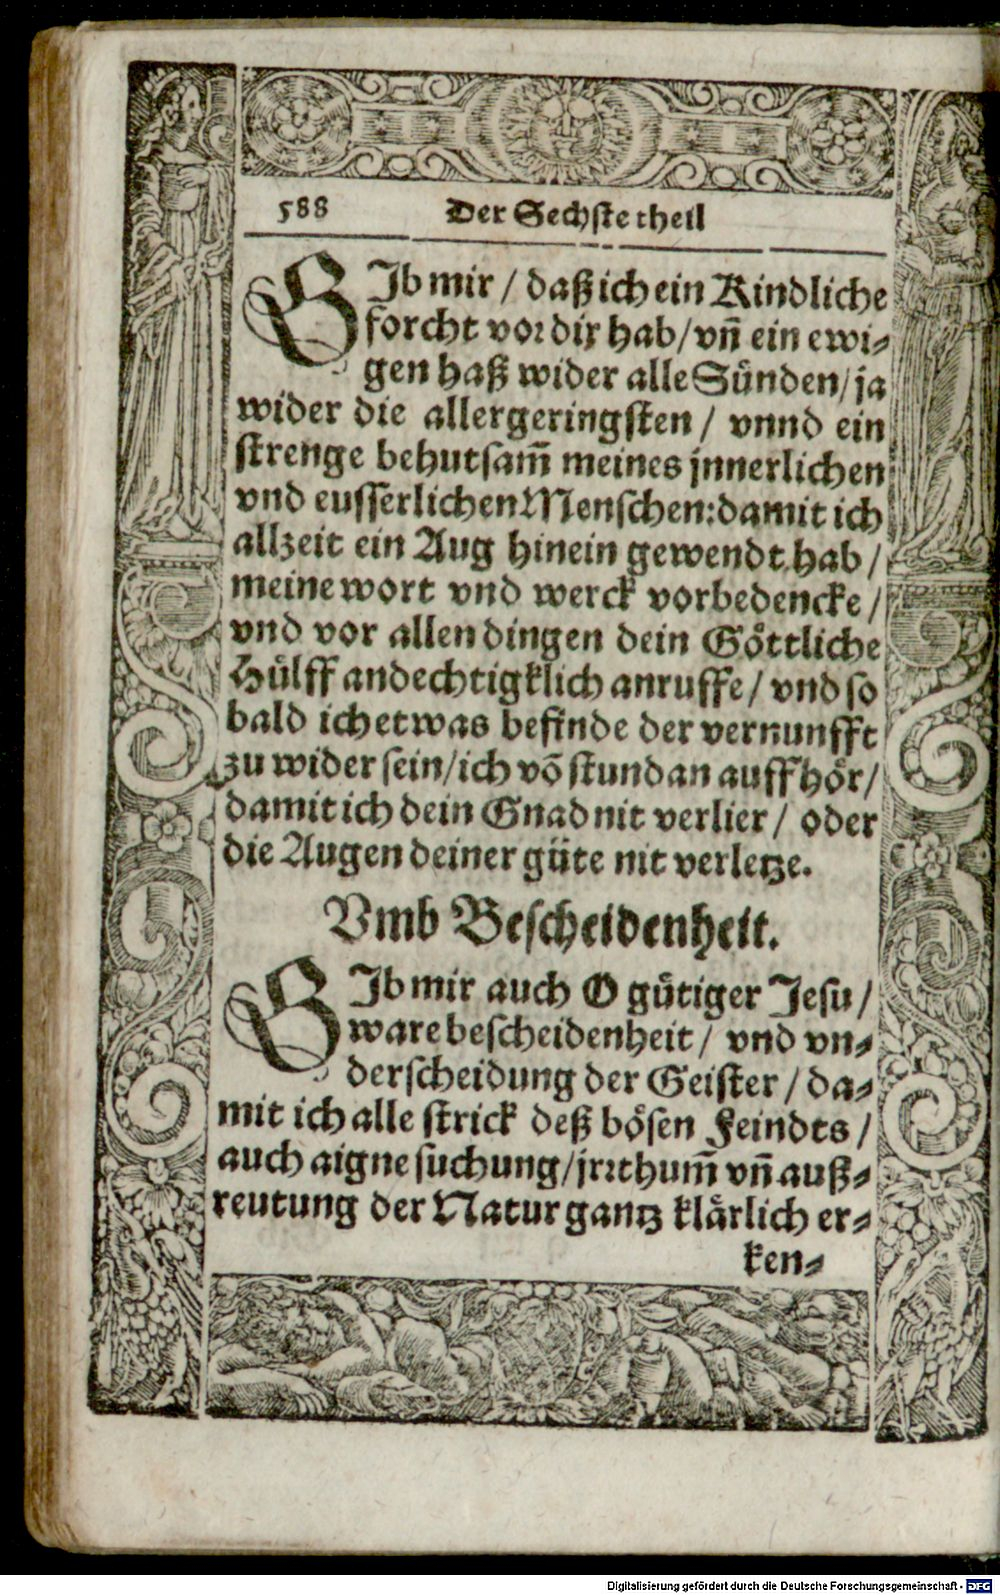 588 Der Sechste theil
GIb mir / daß ich ein Kindliche
forcht vor dir hab / vñ ein ewi⸗
gen haß wider alle Sünden / ja
wider die allergeringsten / vnnd ein
strenge behutsam̃ meines jnnerlichen
vnd eusserlichen Menschen: damit ich
allzeit ein Aug hinein gewendt hab /
meine wort vnd werck vorbedencke /
vnd vor allen dingen dein Göttliche
Hülff andechtigklich anruffe / vnd so
bald ich etwas befinde der vernunfft
zu wider sein / ich võ stund an auffhör /
damit ich dein Gnad nit verlier / oder
die Augen deiner güte nit verletze.
Vmb Bescheidenheit.
GIb mir auch O gütiger Jesu /
ware bescheidenheit / vnd vn⸗
derscheidung der Geister / da⸗
mit ich alle strick deß bösen Feindts /
auch aigne suchung / jrrthum̃ vñ auß⸗
reutung der Natur gantz klärlich er⸗
ken⸗
Digitalisierung gefördert durch die Deutsche Forschungsgemeinschaft - DFG